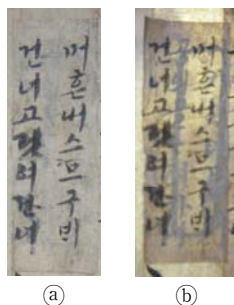 머흔내스므구비
건너고 건너
머흔내스므구비
건너고 건너
ⓐ ⓑ